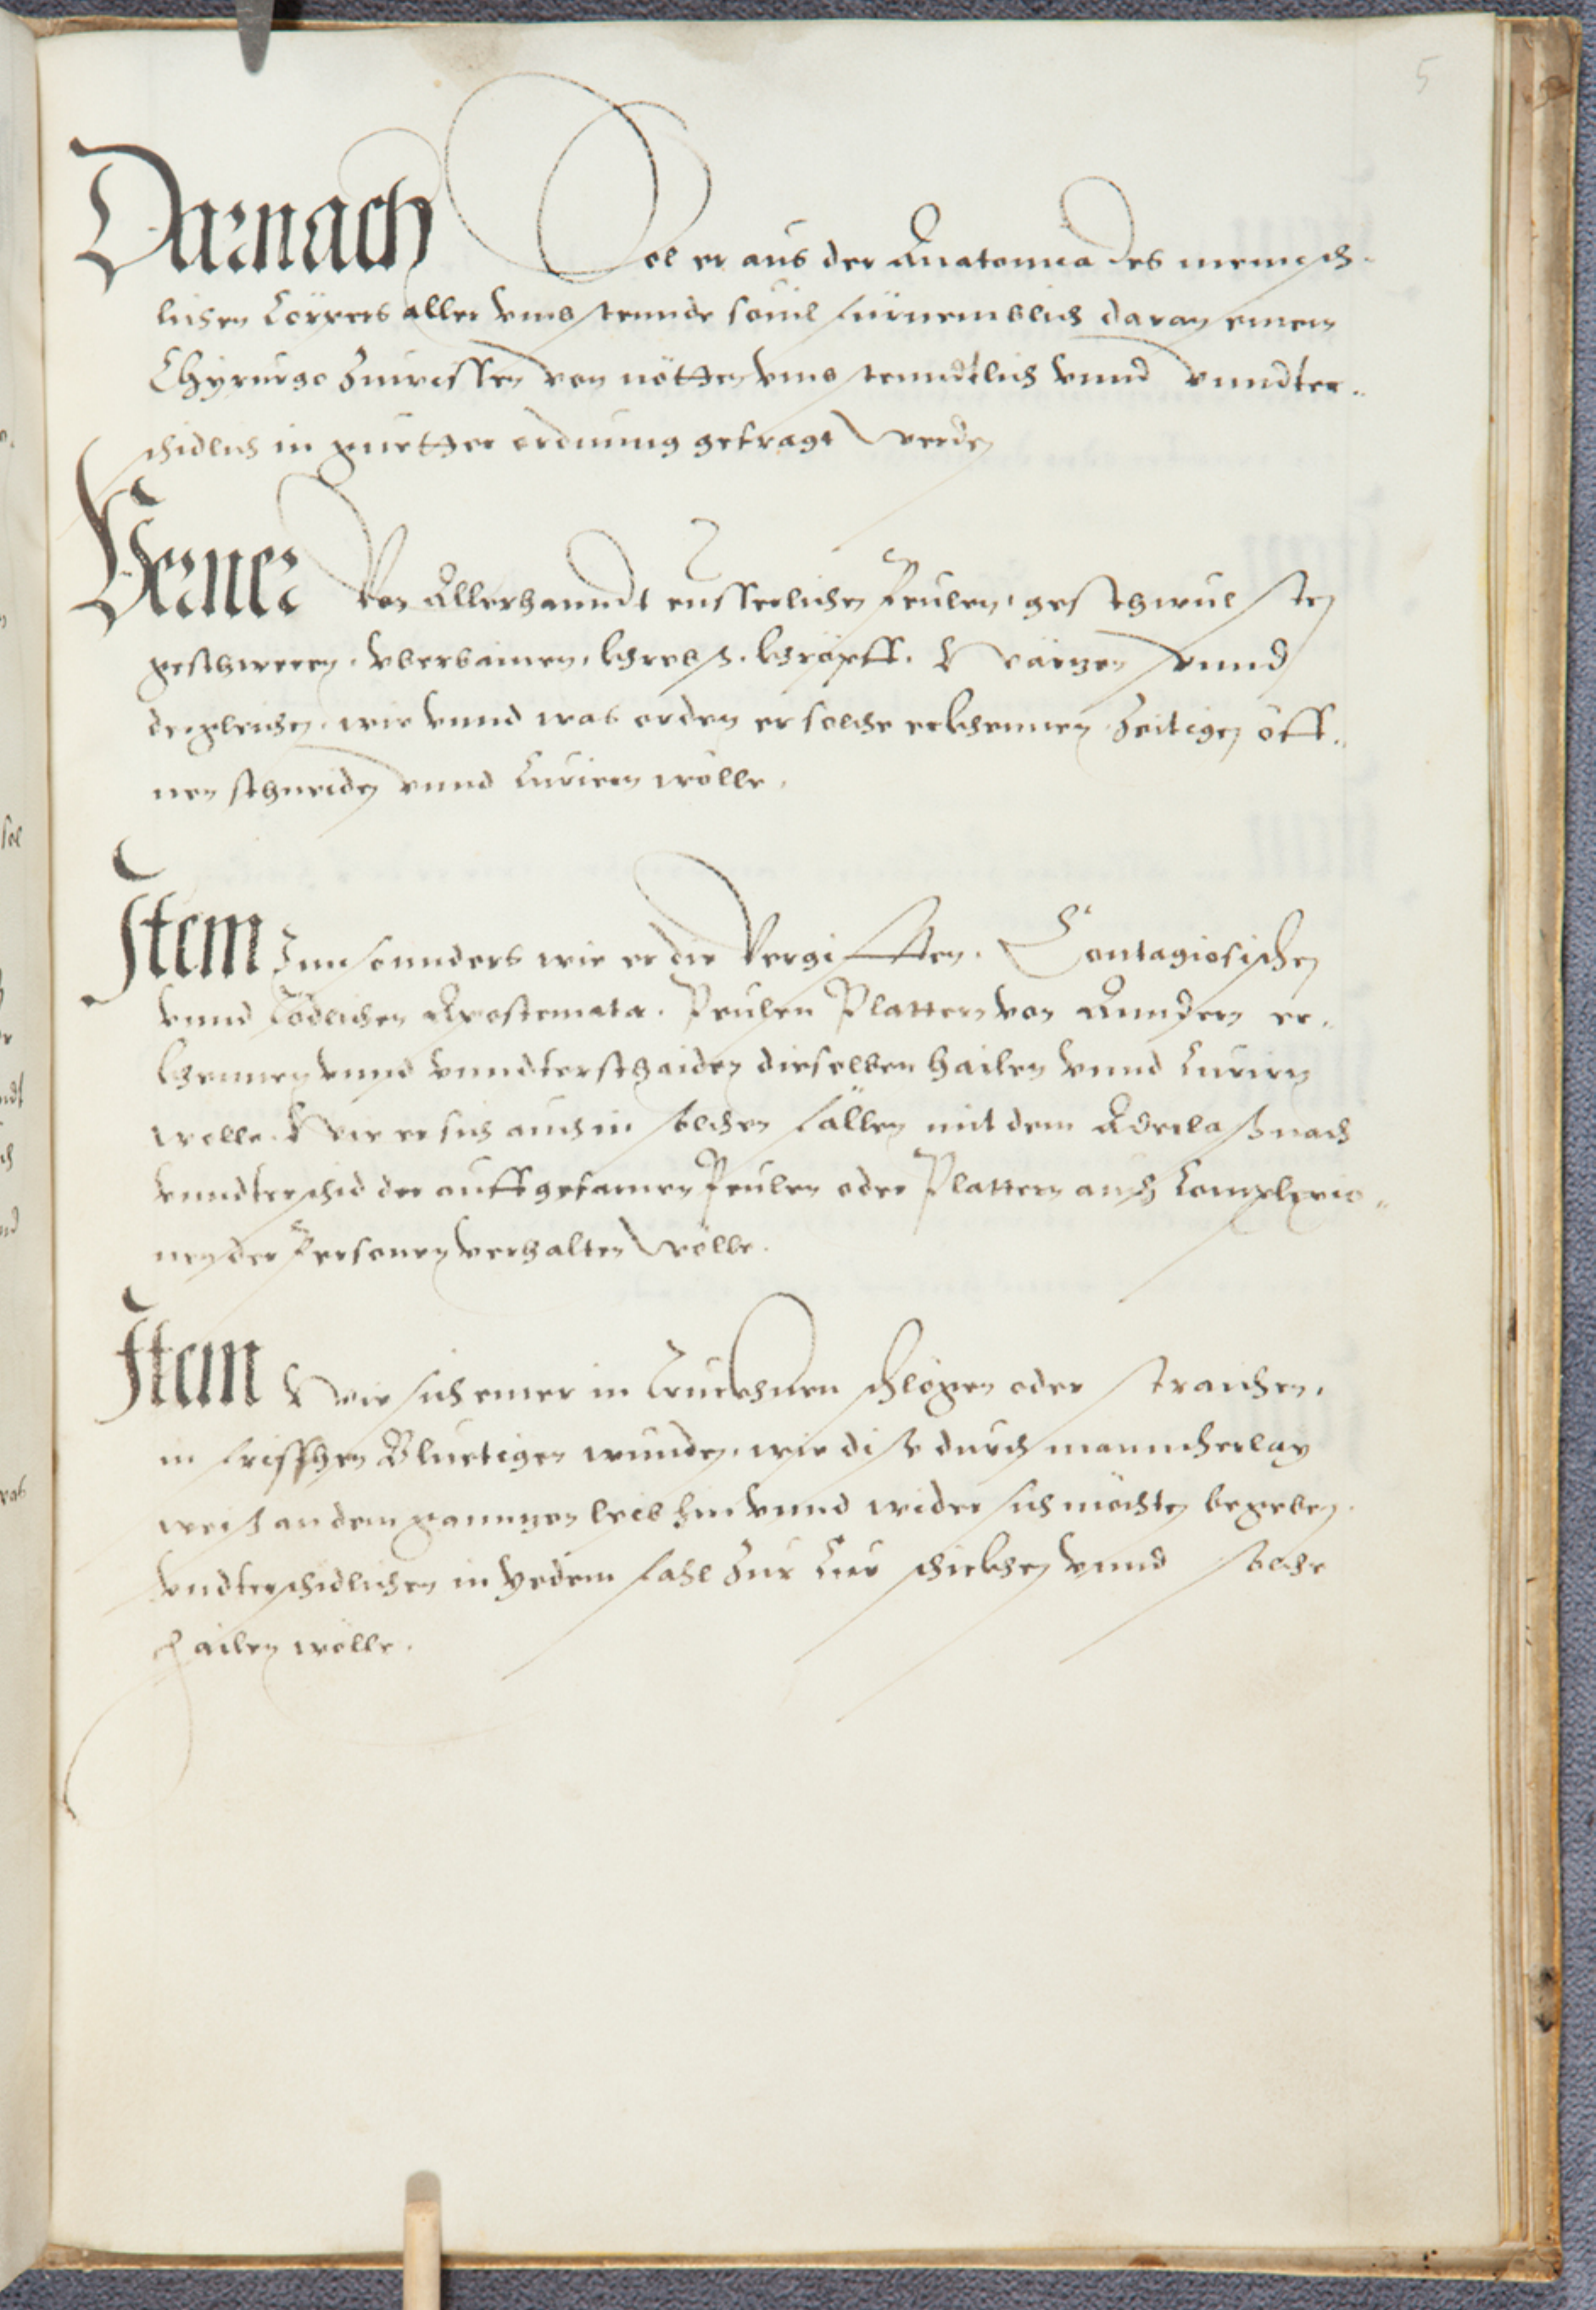 5
Darnach Sol er aus der Anatomia des mennsch-
lichen Cörpers aller umbstennde souil fürnemblich daran einem
Chyrurgo zuwissen von nötten umbstenndtlich vnnd vnndter-
schidlich in guetter ordnung gefragt werden
Verner Von Allerhanndt eusserlichen Peulen, geschwulsten
geschweren, vberbainen, khrebs. khröpff. Wärzen vnnd
dergleichen, wie vnnd was orden er solche erkhennen Zeitigen öff-
nen schneiden vnnd Curiern wölle.
Item Innsonnders wie er die Vergifften. Contagiosischen
vnnd Tödlichen Apostemata. Peulen Plattern von Anndern er-
khennen vnnd vnndterschaiden dieselben hailen vnnd Curirn
wölle. Wie er sich auch in solchen fällen mit dem Aderlaß nach
vnndterschid der auffgefarnen Peulen oder Plattern auch Complexio-
nen der Personen verhalten wölle.
Item Wie sich einer in Truckhnen schlögen oder straichen,
in frisschen Bluetigen wunden, wie dise durch manncherlay
weiß an dem ganntzen leib hin vnnd wider sich möchten begeben.
vndterschidlichen in yedem fahl zur Cur schickhen vnnd solche
hailen wölle.